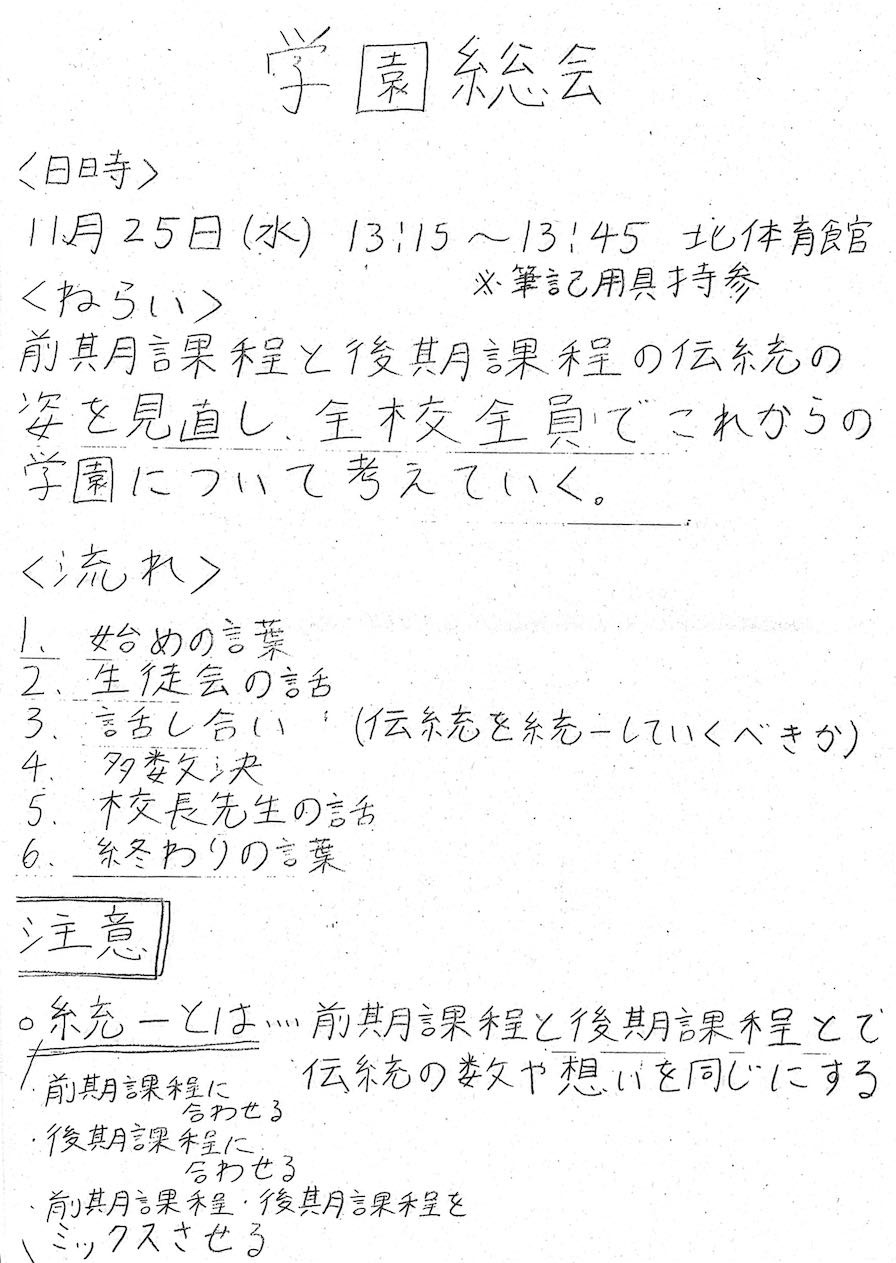 学園総会
<日時>
11月25日(水) 13:15～13:45 北体育館
※筆記用具持参
<ねらい>
前期課程と後期課程の伝統の
姿を見直し、全校全員でこれからの
学園について考えていく。
<流れ>
1. 始めの言葉
2. 生徒会の話
3. 話し合い (伝統を統一していくべきか)
4. 多数決
5. 校長先生の話
6. 終わりの言葉
注意
○統一とは…. 前期課程と後期課程とで
伝統の数や想いを同じにする
・前期課程に
合わせる
・後期課程に
合わせる
・前期課程・後期課程を
ミックスさせる